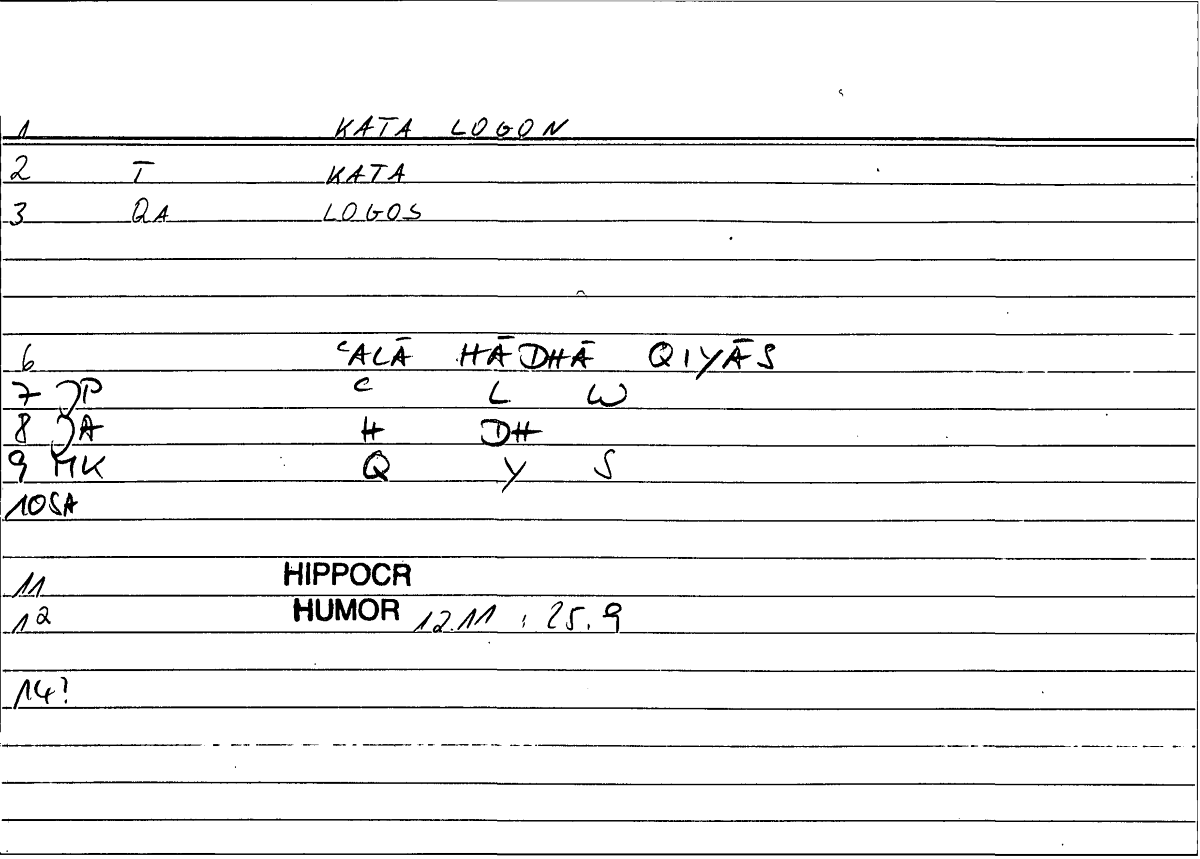 1 KATA LOGON
2 T KATA
3 QA LOGOS
6 ʿALĀ HĀDHĀ QIYĀS
7 JP ʿ L W
8 JA H DH
9 MK Q Y S
10 SA
11 HIPPOCR
12 HUMOR 12.11 , 25.9
14?